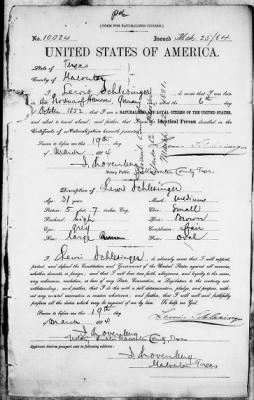 [FORM FOR NATURALIZED CITIZEN.]
No. 10024 Issued Mch 25/84
UNITED STATES OF AMERICA.
State of Texas
County of Galveston
I, Lewis Schlesinger, do swear that I was born
in the Germany on the 6th day
of October 1852; that I am a NATURALIZED AND LOYAL CITIZEN OF THE UNITED STATES,
and about to travel abroad; and further, that I am the Identical Person described in the
Certificate of Naturalization herewith presented.
Sworn to before me this 19th
day of March 1884
I. Lovenberg
Notary Public, Galveston County Texas
Description of Lewis Schlesinger
Age: 31 years Mouth: medium
Stature: 5 feet 7 inches, Eng. Chin: Small
Forehead: high Hair: Brown
Eyes: Grey Complexion: fair
Nose: large Face: oval
I, Lewis Schlesinger, do solemnly swear that I will support,
protect, and defend the Constitution and Government of the United States against all enemies,
whether domestic or foreign; and that I will bear true faith, allegiance, and loyalty to the same,
any ordinance, resolution, or law of any State, Convention, or Legislature to the contrary not-
withstanding; and further, that I do this with a full determination, pledge, and purpose, with-
out any mental reservation or evasion whatsoever; and further, that I will well and faithfully
perform all the duties which may be required of me by law. So help me God.
Sworn to before me this 19th
day of March 1884
I. Lovenberg
Notary Public Galveston County, Texas
Applicant desires passport sent to following address:
I. Lovenberg
Galveston Texas